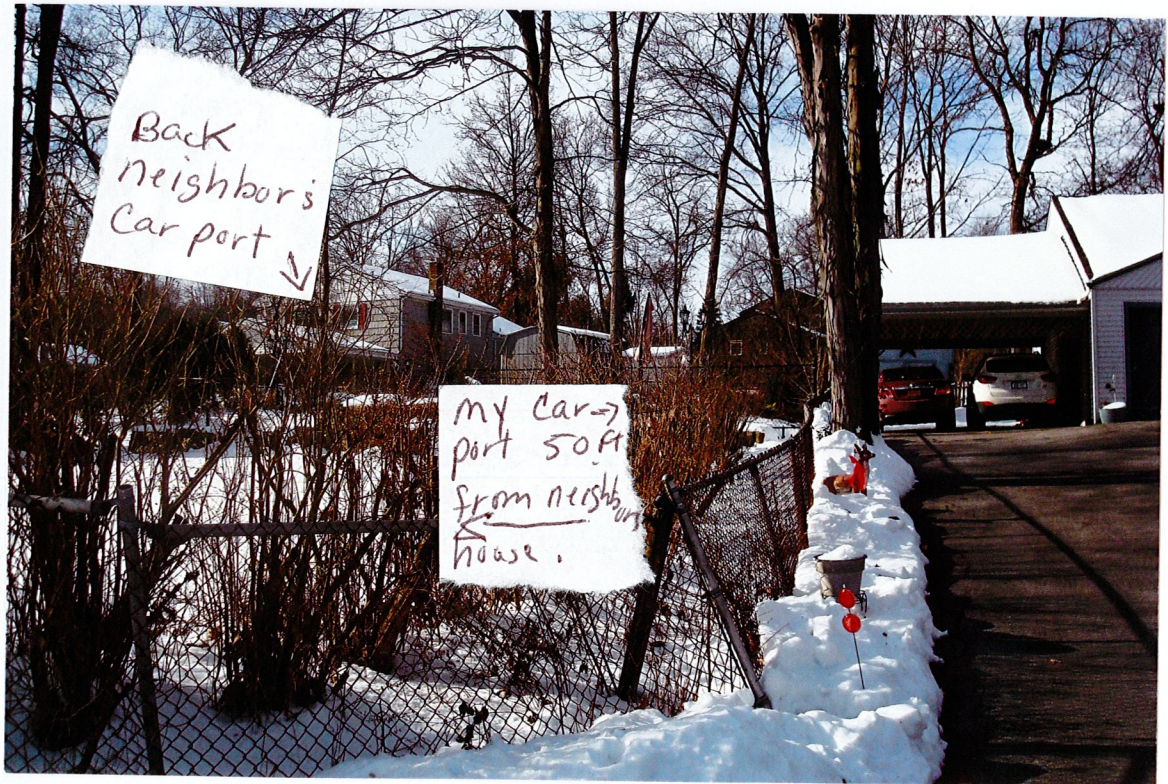 Back
neighbor's
Car port
↘
My Car→
port 50ft
from neighbors
←
house.